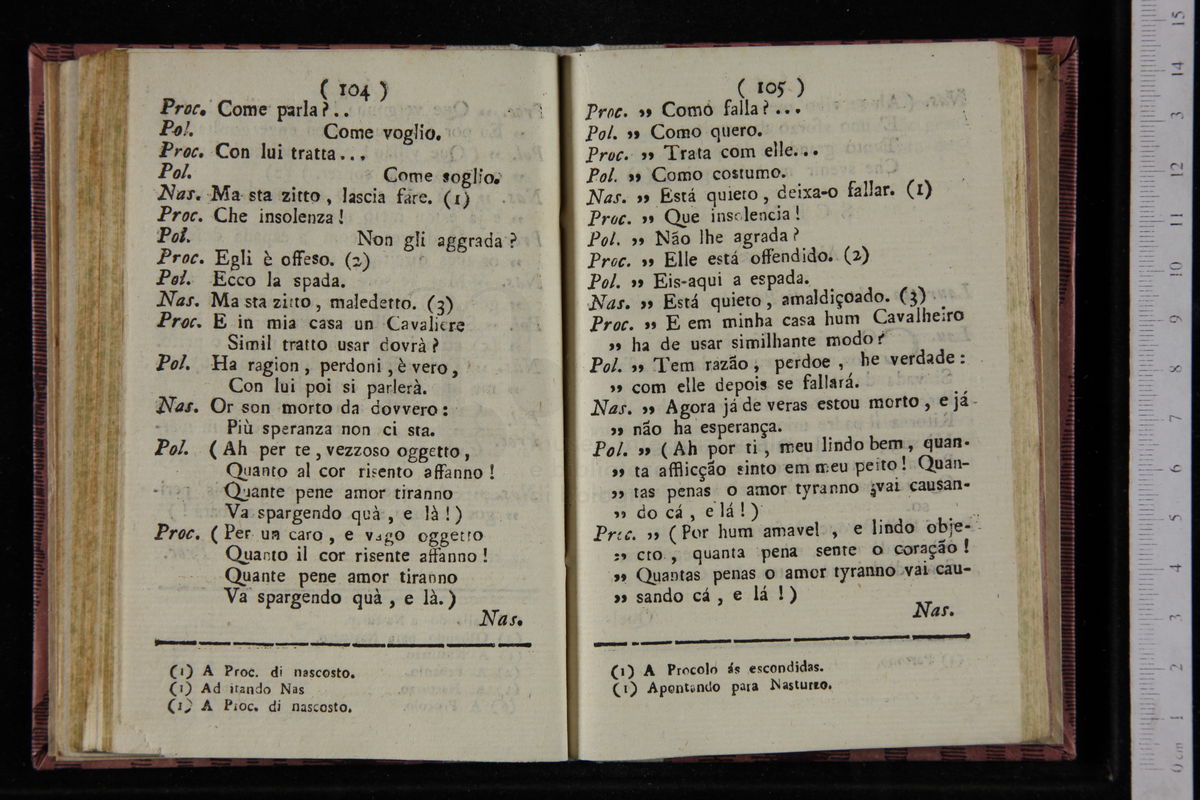 ( 104 )
Proc. Come parla?..
Pol. Come voglio.
Proc. Con lui tratta...
Pol. Come soglio.
Nas. Ma sta zitto, lascia fare. (1)
Proc. Che insolenza!
Pol. Non gli aggrada?
Proc. Egli è offeso. (2)
Pol. Ecco la spada.
Nas. Ma sta zitto, maledetto. (3)
Proc. E in mia casa un Cavaliere
Simil tratto usar dovrà?
Pol. Ha ragion, perdoni, è vero,
Con lui poi si parlerà.
Nas. Or son morto da dovvero:
Più speranza non ci sta.
Pol. (Ah per te, vezzoso oggetto,
Quanto al cor risento affanno!
Quante pene amor tiranno
Va spargendo quà, e là!)
Proc. (Per un caro, e vago oggetto
Quanto il cor risente affanno!
Quante pene amor tiranno
Va spargendo quà, e là.)
Nas.
(1) A Proc. di nascosto.
(1) Ad itando Nas
(1) A Proc. di nascosto.
( 105 )
Proc. „ Como falla?...
Pol. „ Como quero.
Proc. „ Trata com elle...
Pol. „ Como costumo.
Nas. „ Está quieto, deixa-o fallar. (1)
Proc. „ Que insolencia!
Pol. „ Não lhe agrada?
Proc. „ Elle está offendido. (2)
Pol. „ Eis-aqui a espada.
Nas. „ Está quieto, amaldiçoado. (3)
Proc. „ E em minha casa hum Cavalheiro
„ ha de usar similhante modo?
Pol. „ Tem razão, perdoe, he verdade:
„ com elle depois se fallará.
Nas. „ Agora já de veras estou morto, e já
„ não ha esperança.
Pol. „ (Ah por ti, meu lindo bem, quan-
„ ta afflicção sinto em meu peito! Quan-
„ tas penas o amor tyranno vai causan-
„ do cá, e lá!)
Proc. „ (Por hum amavel, e lindo obje-
„ cto, quanta pena sente o coração!
„ Quantas penas o amor tyranno vai cau-
„ sando cá, e lá!)
Nas.
(1) A Procolo ás escondidas.
(1) Apontando para Nasturzo.
0 cm 1 2 3 4 5 6 7 8 9 10 11 12 13 14 15